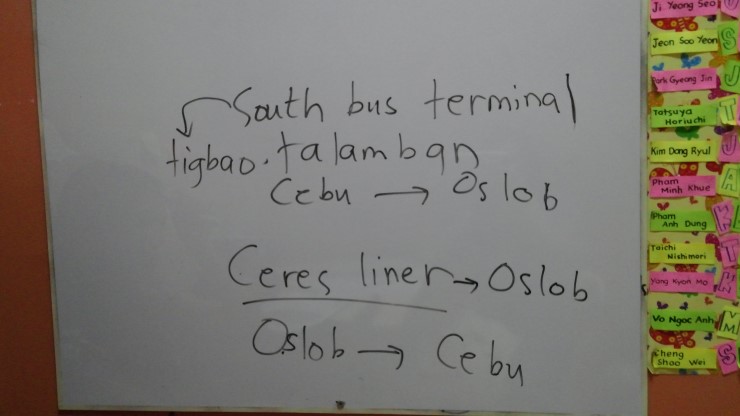 South bus terminal
tigbao. talamban
Cebu → Oslob
Ceres liner → Oslob
Oslob → Cebu
Ji Yeong Seo
Jeon Soo Yeon
S
Park Gyeong Jin
J
Tatsuya
Horiuchi
T
Kim Dong Ryul
J
Pham
Minh Khue
A
Pham
Anh Dung
Taichi
Nishimori
T
Yang Kyon Mo
Vo Ngoc Anh
M
Cheng
Shao Wei
S